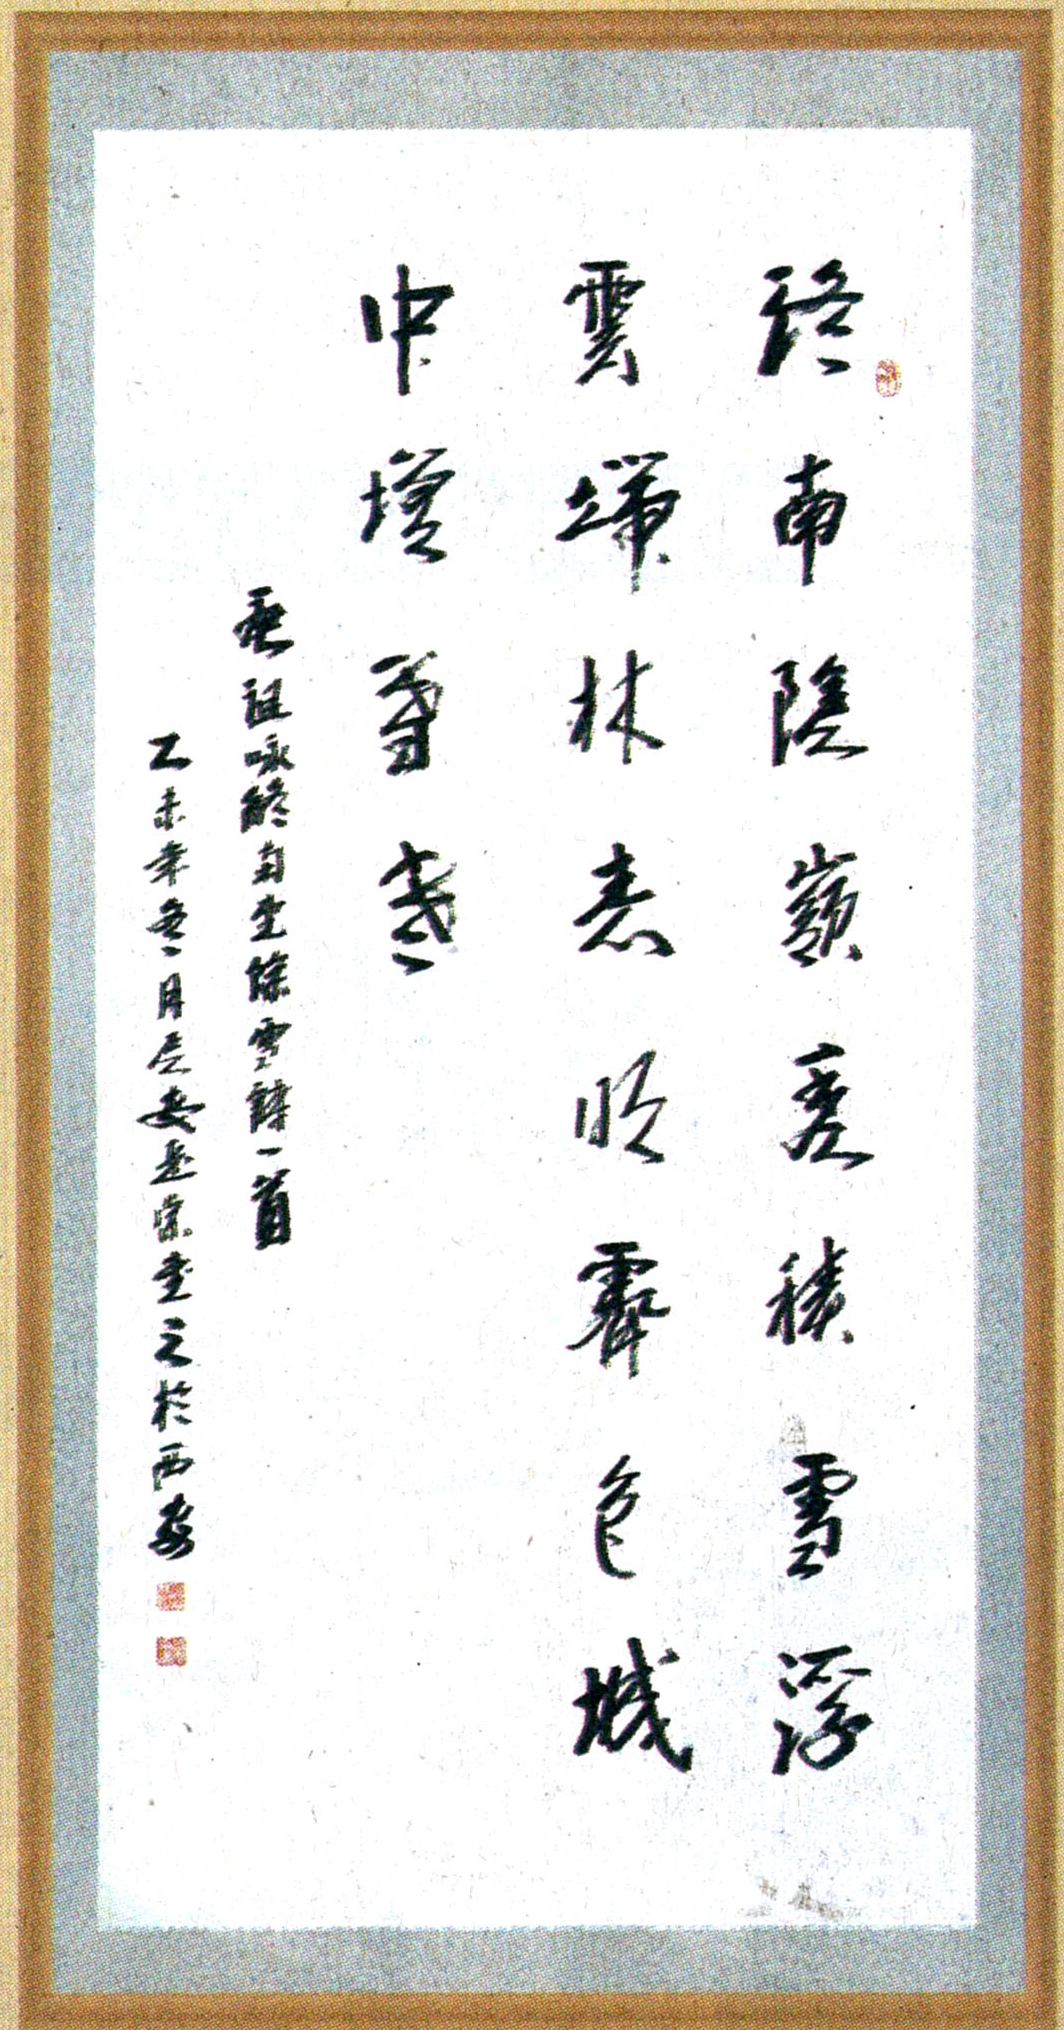 終南陰嶺秀積雪浮
雲端林表明霽色城
中增暮寒
祖咏終南望餘雪詩一首
乙未年冬月長安書之於西安